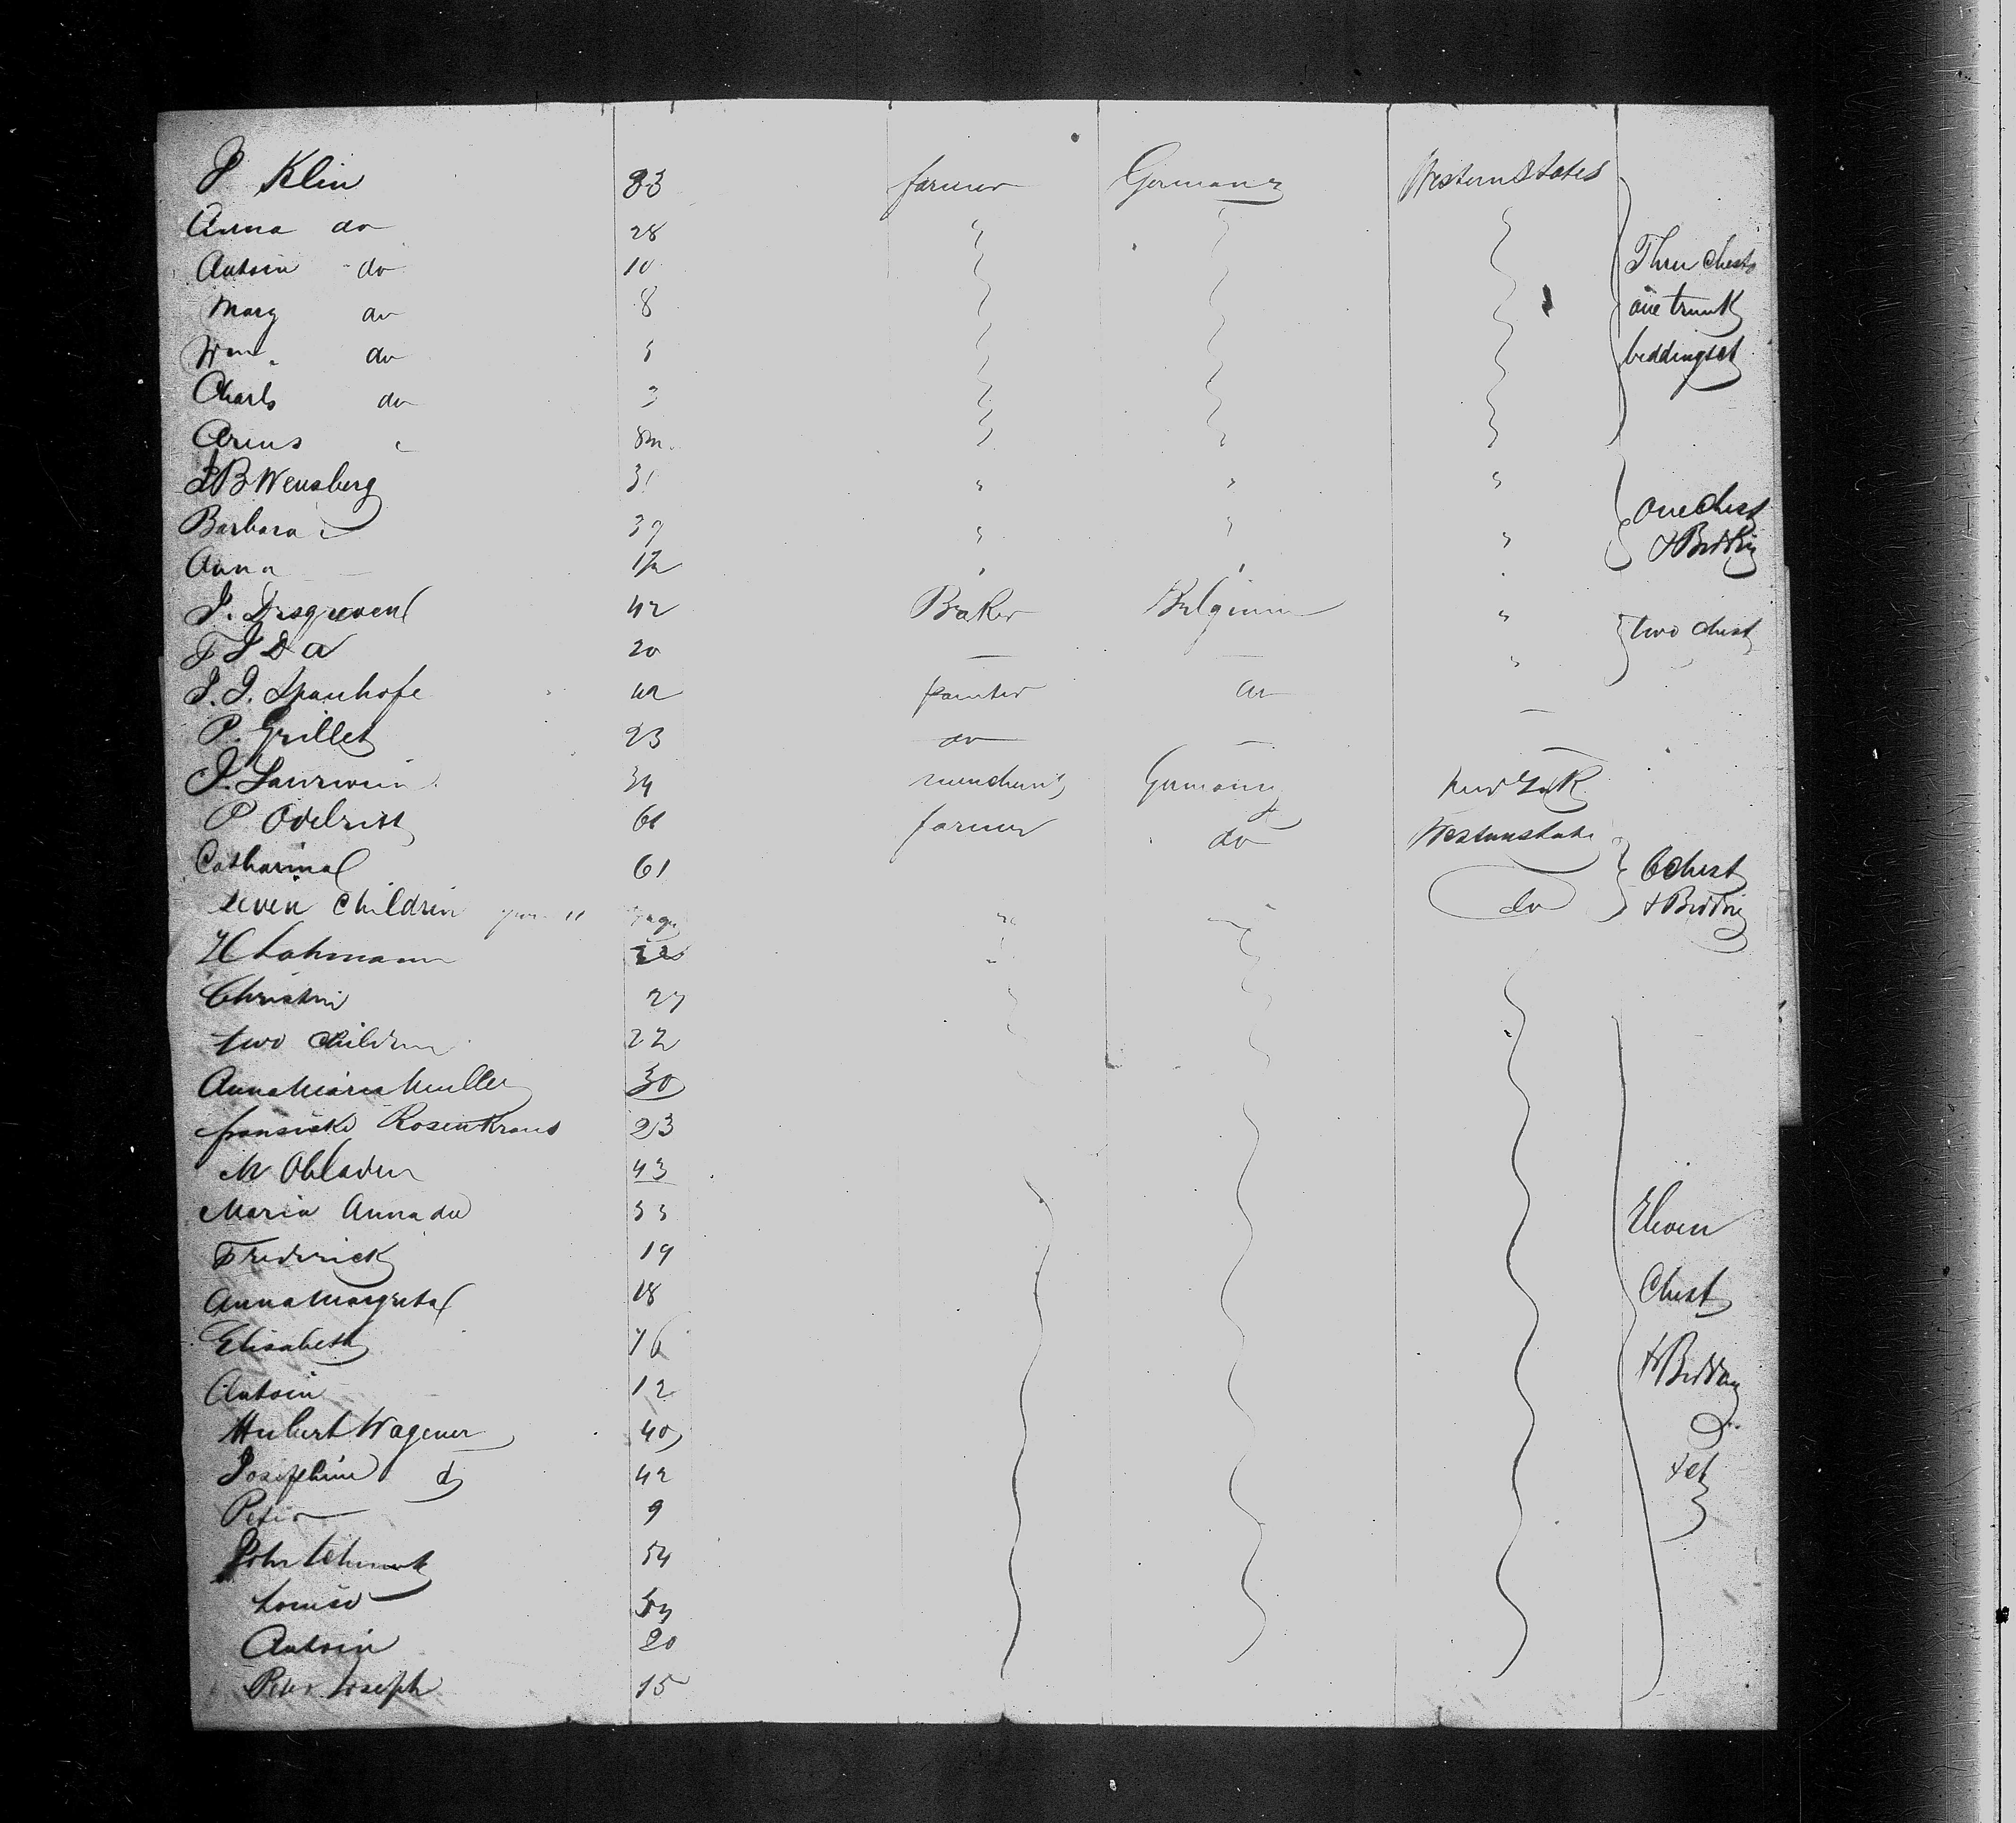 P Klin 33 farmer Germany Western States
Anna do 28 "
Antoin do 10
Mary do 8
Wm. do 5
Charls do 3
Three chests
one trunk
bedding &ct
Arius " 8m.
J B Wensberg 31 " " "
Barbara " 37 " " "
Anna
one chest
& Bedding
J. 42 Baker Belgium "
F J D a 20 — — "
two chest
J. J. Spanhofe 42 painter do —
P. Grillet 23 do — —
J. 34 merchant Germany New York
P 61 farmer do Western state
Catharina 61
seven Children do
6 chest
& Bedding
H Lohmann
Christin 27
two children 2 2
Anna Maria Muller 30
Rosenkrans 23
M Ohladen 43
Maria Anna do 33
Frederick 19
Anna Margreta 18
Elisabeth 16
Antoin 12
Hubert Wagener 40
Josephine do 42
Peter — 9
John 54
Louise
Antoin 20
Peter Joseph 15
Eleven
Chest
& Bedding
& ct